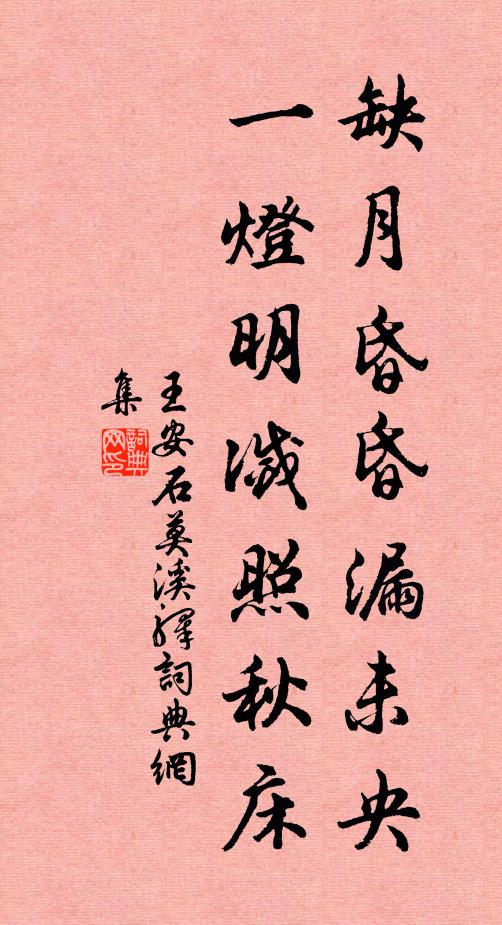 缺月昏昏漏未央
一燈明滅照秋床
王安石葛溪驛詞典網
集
詞典
网印